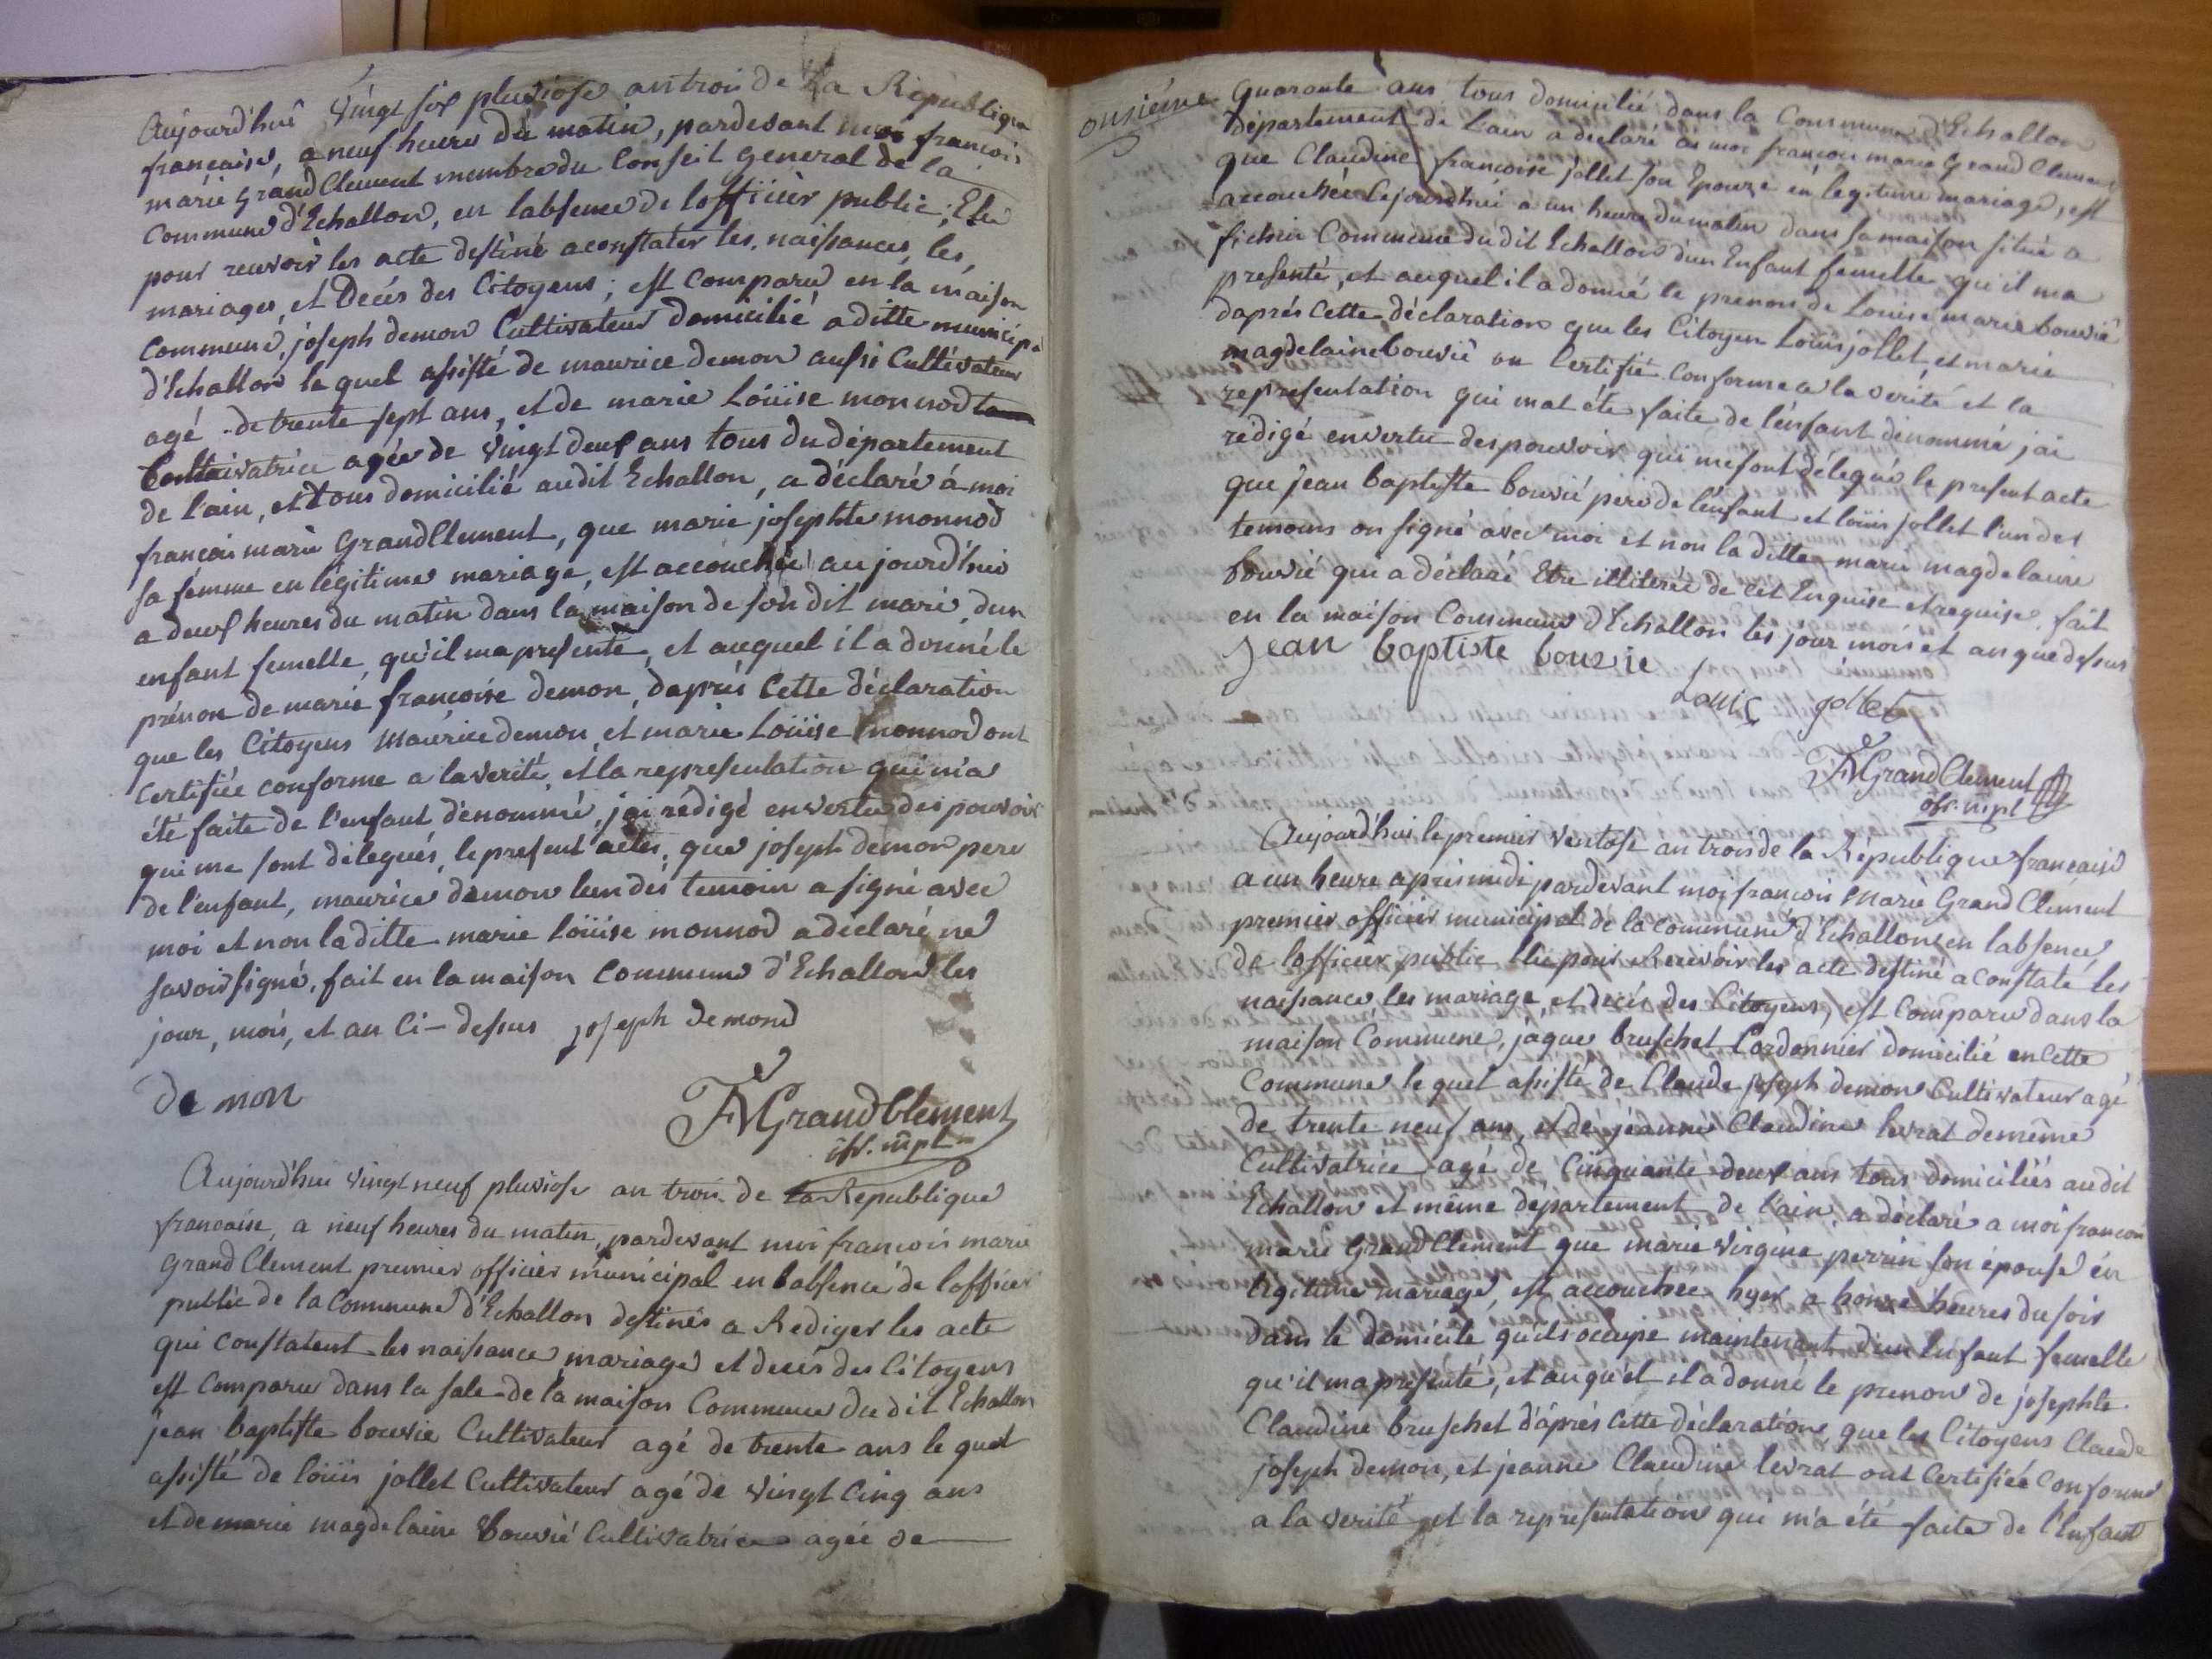 Aujourd'hui vingt six pluviose an trois de la République
francaise, a neuf heures du matin, pardevant moi francois
marie Grand Clement membre du Conseil general de la
Commune d'Echallon, en labsence de lofficier public, Elu
pour recevoir les acte destiné aconstater les, naissances, les,
mariages, et Decés des Citoyens; est Comparu en la maison
Commune, joseph demon Cultivateur domicilié aditte municipa
d'Echallon le quel assisté de maurice demon aussi Cultivateur
agé de trente sept ans, et de marie Loüise monnod
Cultivatrice agée de vingt deux ans tous du département
de l'ain, et tous domicilié audit Echallon, a déclaré á moi
francois marie GrandClement, que marie josephte monnod
sa femme en légitime mariage, est accouchée aujourd'hui
a deux heures du matin dans la maison de son dit mari dun
enfant femelle, qu'il ma presenté, et auquel il a donné le
prénon de marie francoise demon, daprés Cette déclaration
que les Citoyens Maurice demon, et marie Loüise monnod ont
Certifiée conforme a la verité, et la representation qui ma
été faite de l'enfant dénommé, jai rédigé envertu des pouvoir
qui me sont délegués, le present actes, que joseph demon pere
de l'enfant, maurice demon lun des temoin a signé avec
moi et non laditte marie loüise monnod a déclaré ne
savoir signé, fait en la maison Commune d'Echallon les
jour, mois, et an Ci-dessus joseph demond
de mon
FMGrandClement
off. mpl
Aujourd'hui vingt neuf pluviose an trois de la Republique
francaise, a neuf heures du matin, pardevant moi francois marie
Grand Clement premier officier municipal en labsence de lofficier
public de la Commune d'Echallon destinés a Rediger les acte
qui constatent les naissance, mariage et decés des Citoyens
est comparu dans la sale de la maison Commune du dit Echallon
jean baptiste bouvie Cultivateur agé de trente ans le quel
assisté de loüis jollet Cultivateur agé de vingt Cinq ans
et de marie magdelaine Bouvié Cultivatrice agée de
onsiéme
quarante ans tous domicilié dans la Commune d'Echallon
département de l'ain a déclaré á moi francois marie Grand Clement
que Claudine francoise jollet son Epouze en légitime mariage, est
accouchée Cejourdhui a un heure du matin dans sa maison situé a
Commune du dit Echallon dun Enfant femelle qu'il ma
presenté, et auquel il a donné le prenon de Louise marie bouvié
daprés Cette déclaration que les Citoyen Loüis jollet, et marie
magdelaine bouvié on Certifié Conforme a la verité et la
representation qui mat été faite de l'énfant dénommé jai
redigé envertu des pouvoir qui me sont délegué le present acte
que jean baptiste bouvié pere de lénfant et loüis jollet l'un des
temoins on signé avec moi et non la ditte marie magdelaine
bouvié qui a déclaré Etre illiterée de Cet Enquise et requise, fait
en la maison Commune d'Echallon les jour mois et an que dessus
Jean baptiste bouvie
Louis jollet
FMGrandClement
off. mpl
Aujourd'hui le premier ventose an trois de la République francaise
a un heure aprésmidi pardevant moi francois Marie Grand Clément
premier officier municipal de la commune d'Echallon en labsence
de lofficier public Elu pour Recevoir les acte destiné a constaté les
naissance les mariage, et decés des Citoyens, est Comparu dans la
maison Commune, jàques bruschet Cordonnier domicilié en Cette
Commune le quel assisté de Claude joseph demon Cultivateur agé
de trente neuf ans, et de jéanne Claudine levrat demême
Cultivatrice agé de Cinquante deux ans tous domiciliés audit
Echallon et même département de l'ain, a déclaré a moi francois
marie Grand Clement que marie virgine perrin son épouse én
légitime mariage, est accouchée hyer a honze heures du soir
dans le domicile quils occupe maintenant d'un Enfant femelle
qu'il ma présenté, et auquél il a donné le prenon de josephte
Claudine bruschet d'áprés Cette déclaration que les Citoyens Claude
joseph demon, et jeanne Claudine levrat ont Certifiée Conforme
a la verité et la representation qui m'a été faite de l'Enfant